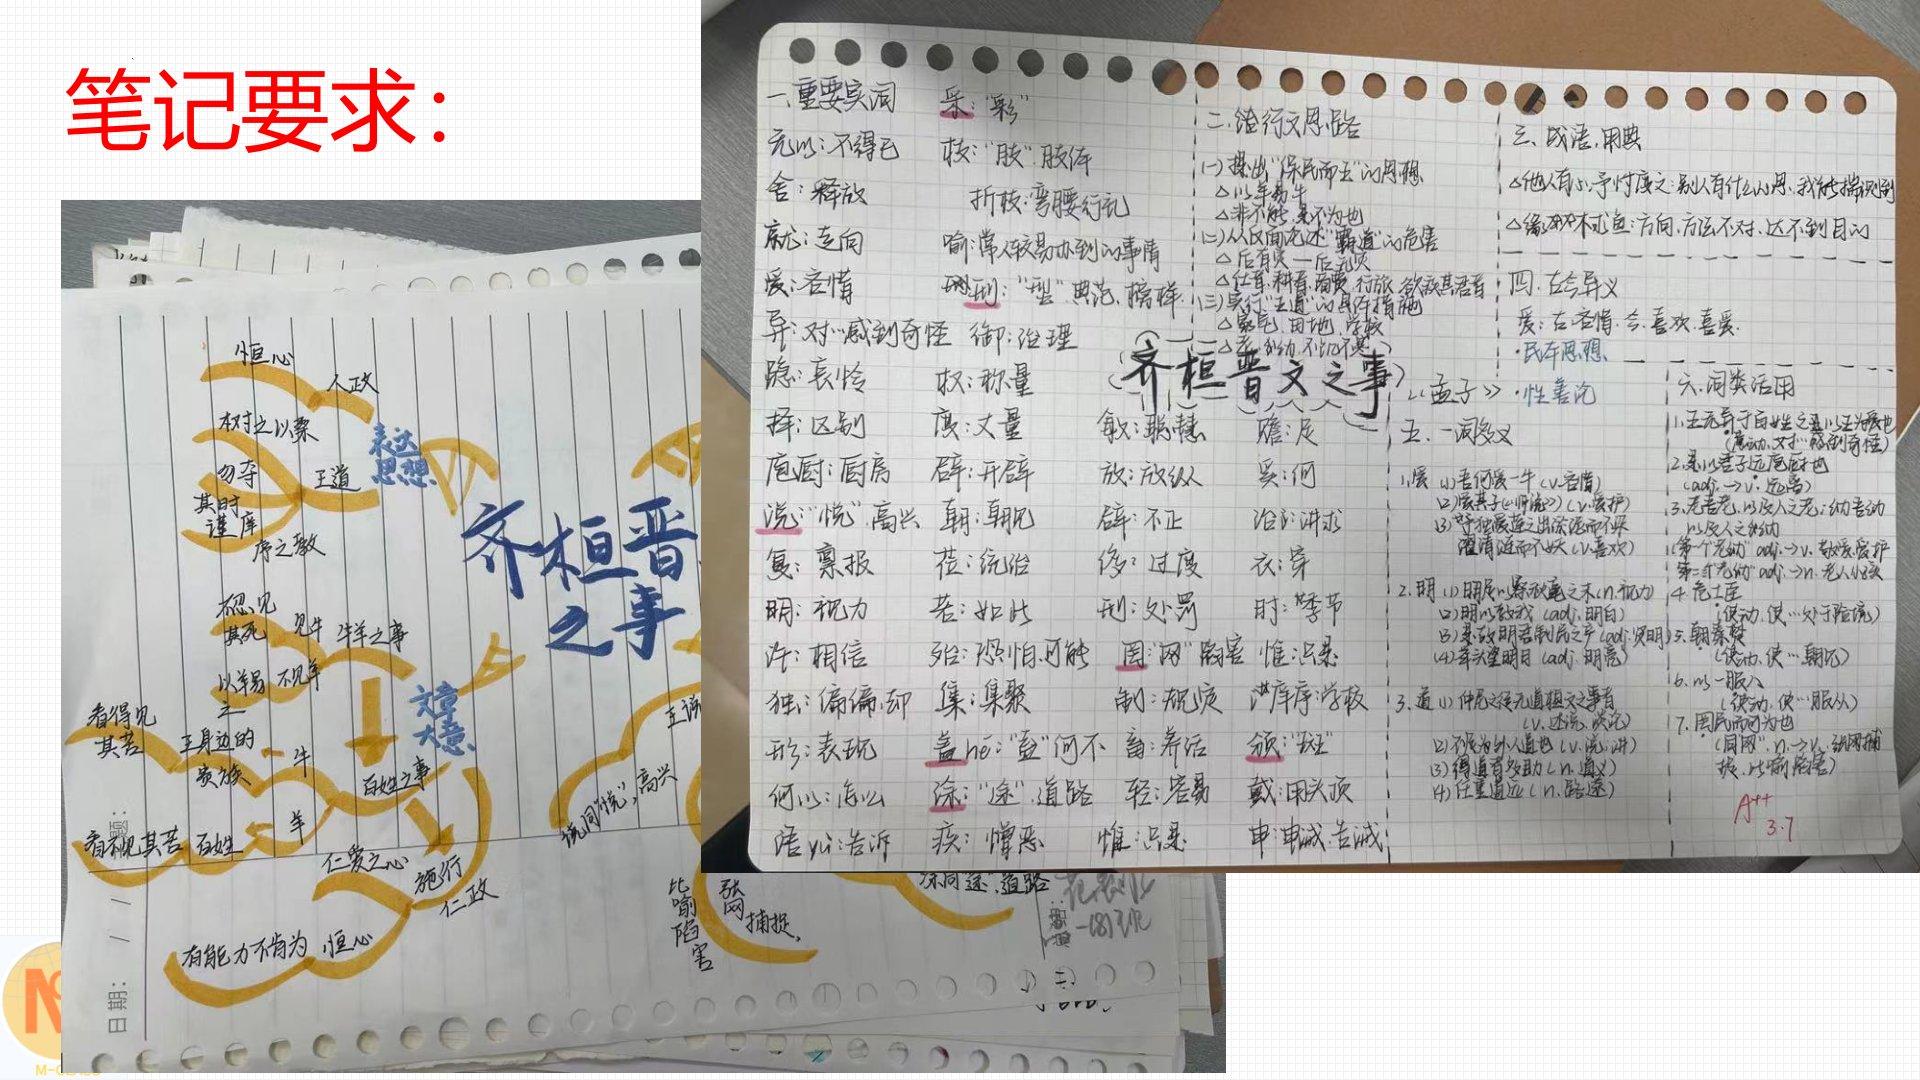 笔记要求：
恒心
仁政
树之以桑
表达
思想
勿夺
其时
王道
谨庠
序之教
齐桓晋
之事
不忍见
其死
见牛
牛羊之事
以羊易
之
不见羊
文章
大意
看得见
其苦
王身边的
贵族
牛
百姓之事
羊
看不见其苦
百姓
仁爱之心
施行
仁政
有能力不肯为
恒心
说同"悦"，高兴
比喻陷害
张网
捕捉，
涂同途"，道路
日期：
一.重要实词
采："彩"
无以：不得已
枝："肢"肢体
舍：释放
折枝：弯腰行礼
就：走向
爱：吝惜
刑："型"典范、榜样
异：对…感到奇怪
御：治理
隐：哀怜
权：称量
择：区别
度：丈量
敏：聪慧
赡：足
庖厨：厨房
辟：开辟
放：放纵
奚：何
说："悦"，高兴
朝：朝见
辟：不正
治：讲求
复：禀报
莅：统治
侈：过度
衣：穿
明：视力
若：如此
刑：处罚
时：季节
许：相信
殆：恐怕，可能
罔："网"陷害
惟：只是
独：偏偏，却
集：集聚
制：规定
庠序：学校
形：表现
盖hé："盍"何不
畜：养活
颁："斑"
何以：怎么
涂："途"，道路
轻：容易
戴：用头顶
语yù：告诉
疾：憎恶
惟：只是
申：申诫，告诫
二.行文思路
(一)提出"保民而王"的思想
△以羊易牛
△非不能，是不为也
(二)从反面论述"霸道"的危害
△后有灾—后无灾
(三)实行"王道"的具体措施
齐桓晋文之事
三.成语.用典
△他人有心，予忖度之：别人有什么心思，我能揣测到
△缘木求鱼：方向、方法不对，达不到目的
四.古今异义
爱：古.吝惜.今.喜欢.喜爱.
·民本思想
《孟子》
·性善论
五.一词多义
1.爱 (1)吾何爱一牛(v.吝惜)
(2)爱其子(《师说》)(v.爱护)
濯清涟而不妖(v.喜欢)
2.明 (1)明足以察秋毫之末(n.视力)
(2)明以教我(adj.明白)
(3)是故明君制民之产(adj.贤明)
(4)举头望明月(adj.明亮)
3.道 (1)仲尼之徒无道桓文之事者
(2)不足为外人道也(v.说，讲)
(3)得道者多助(n.道义)
(4)任重道远(n.路途)
六.词类活用
2.是以君子远庖厨也
(adj.→v.远离)
3.老吾老，以及人之老；幼吾幼
以及人之幼
4.危士臣
(使动，使…处于险境)
5.朝秦楚
(使动，使…朝见)
6.以一服八
(使动，使…服从)
7.罔民而可为也
A++
3.7